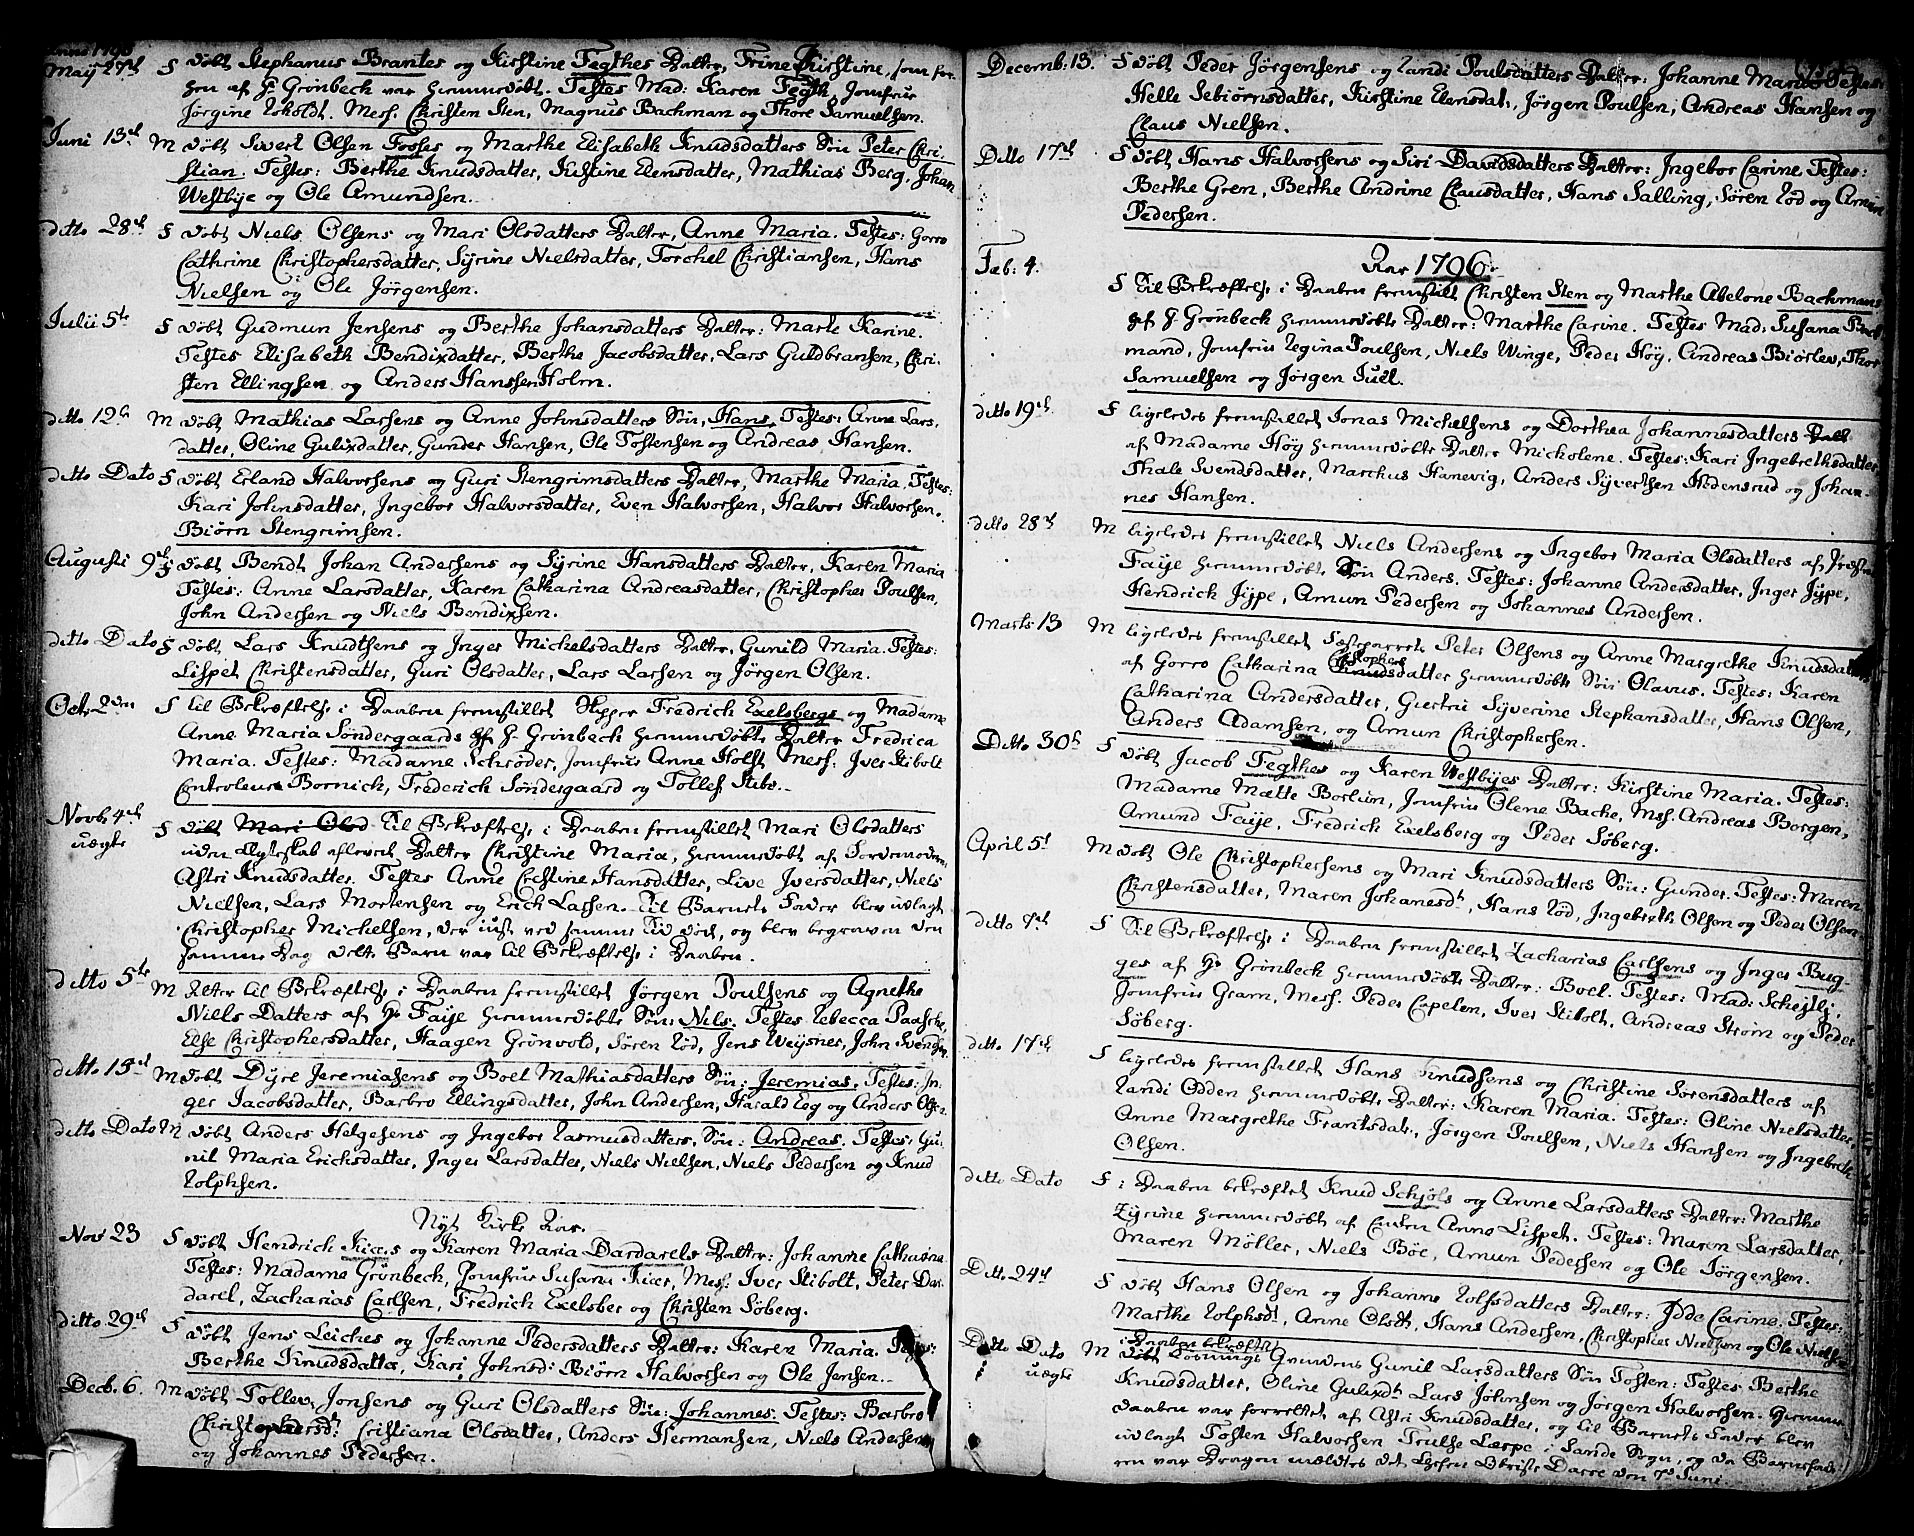 Anno 1795
May 27d F døbt Stephanus Brantes og Kirstine Fegthes Datter, Trine Kirstine, som for-
hen af H Grønbeck var hiemmedøbt. Testes Mad: Karen Fegth, Jomfrue
Jørgine Roholdt. Mess. Christen Sten, Magnus Bachman og Thore Samuelsen.
Juni 13d M døbt Sivert Olsen Fosses og Marthe Elisabeth Knudsdatters Søn Peter Chri-
stian. Testes: Berthe Knudsdatter, Kirstine Elensdatter, Mathias Berg, Johan
Westbye og Ole Amundsen.
ditto 28d F døbt Niels Olsens og Mari Olsdatters Datter, Anne Maria. Testes: Gorro
Cathrine Christophersdatter, Syrine Nielsdatter, Torchel Christiansen, Hans
Nielsen og Ole Jørgensen.
Julii 5te F døbt Gudmun Jensens og Berthe Johansdatters Datter: Marte Karine.
Testes Elisabeth Bendixdatter, Berthe Jacobsdatter, Lars Guldbransen, Chri-
sten Ellingsen og Anders Hanssen Holm.
ditto 12te M døbt Mathias Larsens og Anne Johnsdatters Søn, Hans. Testes: Anne Lars-
datter, Oline Gulixdatter, Gunder Hansen, Ole Tostensen og Andreas Hansen.
ditto Dato F døbt Erland Halvorsens og Guri Stengrimsdatters Datter, Marthe Maria. Testes:
Kari Johnsdatter, Ingebor Halvorsdatter, Even Halvorsen, Halvor Halvorsen.
Biørn Stengrimsen.
Augusti 9d F døbt Bendt Johan Andersens og Syrine Hansdatters Datter, Karen Maria
Testes: Anne Larsdatter, Karen Catharina Andreasdatter, Christopher Poulsen,
John Andersen og Niels Bendixsen.
ditto Dato F døbt Lars Knudtsens og Inger Michelsdatters Datter, Gunild Maria. Testes:
Lispet Christensdatter, Guri Olsdatter, Lars Larsen og Jørgen Olsen.
Oct. 2den F til Bekræftelse i Daaben fremstillet Skipper Fredrich Exelsbergs og Madame
Anne Maria Søndergaards af H Grønbeck hiemmedøbte Datter Fredrica
Maria. Testes: Madame Schrøder, Jomfrue Anne Holst, Mess: Iver Stibolt
Controleur Bornich, Frederich Søndergaard og Tollef Stub.
Novb. 4d uægte F døbt Mari Olsd til Bekræftelse i Daaben fremstillet Mari Olsdatters
uden Ægteskab aflevet Datter Christine Maria, hiemmedøbt af Jordemoderen
Astri Knudsdatter. Testes Anne Chestine Hansdatter, Live Iversdatter, Niels
Nielsen, Lars Mortensen og Erich Larsen. Til Barnets Fader blev udlagt
Christopher Michelsen, der just ved samme Tid døde, og blev begraven den
samme Dag dette Barn var til Bekræftelse i Daaben.
ditto 5te M Atter til Bekræftelse i Daaben fremstillet Jørgen Poulsens og Agnethe
Niels Datters af Hr Faije hiemmedøbte Søn: Nels. Testes Rebecca Paaske,
Else Christophersdatter, Haagen Grönvold, Søren Rød, Jens Weysner, John Svendsen
ditto 15d M døbt Dyre Jeremiasens og Boel Mathiasdatters Søn: Jeremias. Testes: In-
ger Jacobsdatter, Barbro Ellingsdatter, John Andersen, Harald Eeg og Anders Olsen.
ditto Dato M døbt Anders Helgesens og Ingebor Rasmusdatters, Søn: Andreas. Testes: Gu-
nil Maria Erichsdatter, Inger Larsdatter, Niels Nielsen, Niels Pedersen og Knud
Rolphsen.
Nyt Kirke Aar.
Nov 23 F døbt Hendrich Kiærs og Karen Maria Dardarels Datter: Johanne Catharine
Testes: Madame Grønbeck, Jomfrue Susane Kiær, Mess. Iver Stibolt, Peter Dar-
darel, Zacharias Carlsen, Fredrich Exelsber og Christen Søberg.
ditto 29d F døbt Jens Leiches og Johanne Pedersdatters Datter: Karen Maria. Testes:
Berthe Knudsdatter, Kari Johnsd: Biørn Halvorsen og Ole Jensen.
Decb. 6. M døbt Tollev Jonsens og Guri Olsdatters Søn: Johannes. Testes: Barbro
Christophersdt Cristiana Olsdatter, Anders Hermansen, Niels Andersen
og Johannes Pedersen.
Decemb: 13. F døbt Peder Jörgensens og Randi Poulsdatters Datter: Johanne Marie Testes:
Helle Sebiørnsdatter, Kirstine Elensdat., Jørgen Poulsen, Andreas Hansen og
Claus Nielsen.
Ditto 17d F døbt Hans Halvorsens og Siri Davidsdatters Datter: Ingebor Carine. Testes:
Berthe Gren, Berthe Andrine Clausdatter, Hans Salling, Søren Rød og Amun
Pedersen.
Aar 1796.
Feb: 4. F til Bekræftelse i Daaben fremstilt Christen Sten og Marthe Abelone Bachmans
af H Grønbeck hiemmedøbte Datter: Marthe Carine. Testes Mad: Susana Bach
mand, Jomfrue Regina Poulsen, Niels Winge, Peder Høy, Andreas Biørlev, Thor
Samuelsen og Jørgen Juel.
ditto 19d F ligeledes fremstillet Jonas Michelsens og Dorthea Johannesdatters Datt
af Madame Høy hiemmedøbte Datter Micholene. Testes: Kari Ingebrethsdatter
Thale Svendsdatter, Marchus Hanevig, Anders Syvertsen Hedensrud og Johan-
nes Hansen.
ditto 28d M ligeledes fremstillet Niels Andersens og Ingebor Maria Olsdatters af Præsten
Faije hiemmedøbte Søn Anders. Testes: Johanne Andersdatter, Inger Jype,
Hendrich Jype, Amun Pedersen og Johannes Andersen.
Marts 13 M ligeledes fremstillet Peter Olsens og Anne Margrethe Knudsdatters
af Gorro Catharina Christophers Knudsdatter hiemmedøbte Søn Olavus. Testes: Karen
Catharina Andersdatter, Giertru Syverine Stephansdatter, Hans Olsen,
Anders Adamsen, og Amun Christophersen.
Ditto 30te F døbt Jacob Fegthes og Karen Westbyes Datter: Kirstine Maria. Testes:
Madame Mætte Borlum, Jomfrue Olene Bache, Mss. Andreas Borgen,
Amund Faije, Fredrich Exelsberg og Peder Søberg.
April 5t M døbt Ole Christophersens og Mari Knudsdatters Søn: Gunder. Testes: Maren
Christensdatter, Maren Johanesdt, Hans Rød, Ingebreth Olsen og Peder Olsen
ditto 7d F til Bekræftelse i Daaben fremstillet Zacharias Carlsens og Inger Bug-
ges af Hr Grönbeck hiemmedøbte Datter: Boel. Testes: Mad: Schejtlj,
Jomfrue Gram, Mess: Peder Capelen, Iver Stibolt, Andreas Strøm og Peder
Søberg.
ditto 17d F ligeledes fremstillet Hans Knudsens og Christine Sørensdatters af
Randi Odden hiemmedøbte Datter: Karen Maria. Testes: Oline Nielsdatter,
Anne Margrethe Frantsdat., Jørgen Poulsen, Niels Hansen og Ingebreth
Olsen.
ditto Dato F i Daaben bekræftet Knud Schjøls og Anne Larsdatters Datter: Marthe
Zyrine hiemmedøbt af Enken Anne Lispet. Testes: Maren Larsdatter,
Maren Möller, Niels Böe, Amun Pedersen og Ole Jörgensen.
Ditto 24d F døbt Hans Olsen og Johanne Rolfsdatters Datter: Idde Carine. Testes:
Marthe Rolphsdt, Anne Olsdt, Hans Andersen, Christopher Nielsen og Ole Nielsen
Ditto Dato uægte M i Daaben bekræftet døbt Løsnings Gunil Larsdatters Søn Tosten: Testes Berthe
Knudsdatter, Oline Gulixdt Lars Johnsen og Jørgen Halvorsen. Hiemme
daaben var forrettet af Astri Knudsdatter, og til Barnets Fader blev
udlagt Tosten Halvorsen Trulse Lærpe i Sande Sogn, og da Barnefade-
ren var Dragon meldtes det Chefen Obriste Darre den 7d Juni